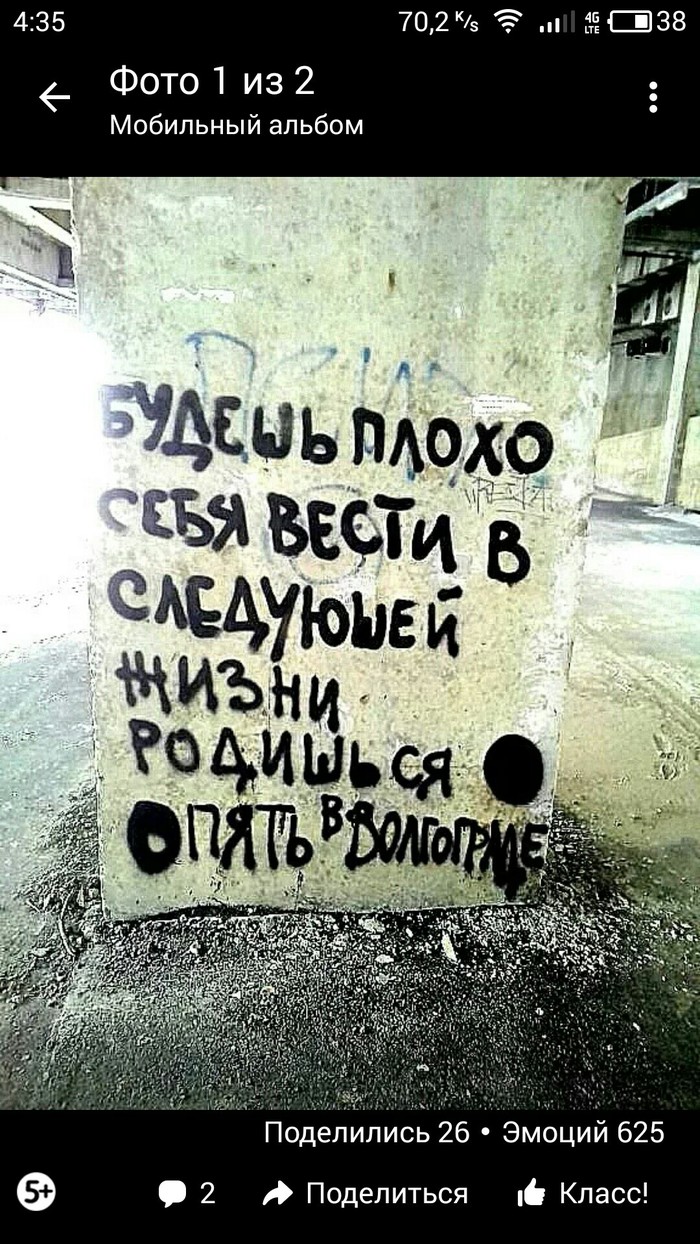 4:35 70,2 K/s 4G LTE 38
Фото 1 из 2
Мобильный альбом
БУДЕШЬ ПЛОХО
СЕБЯ ВЕСТИ В
СЛЕДУЮШЕЙ
ЖИЗНИ
РОДИШЬСЯ
ОПЯТЬ В ВОЛГОГРАДЕ
Поделились 26 • Эмоций 625
5+ 2 Поделиться Класс!